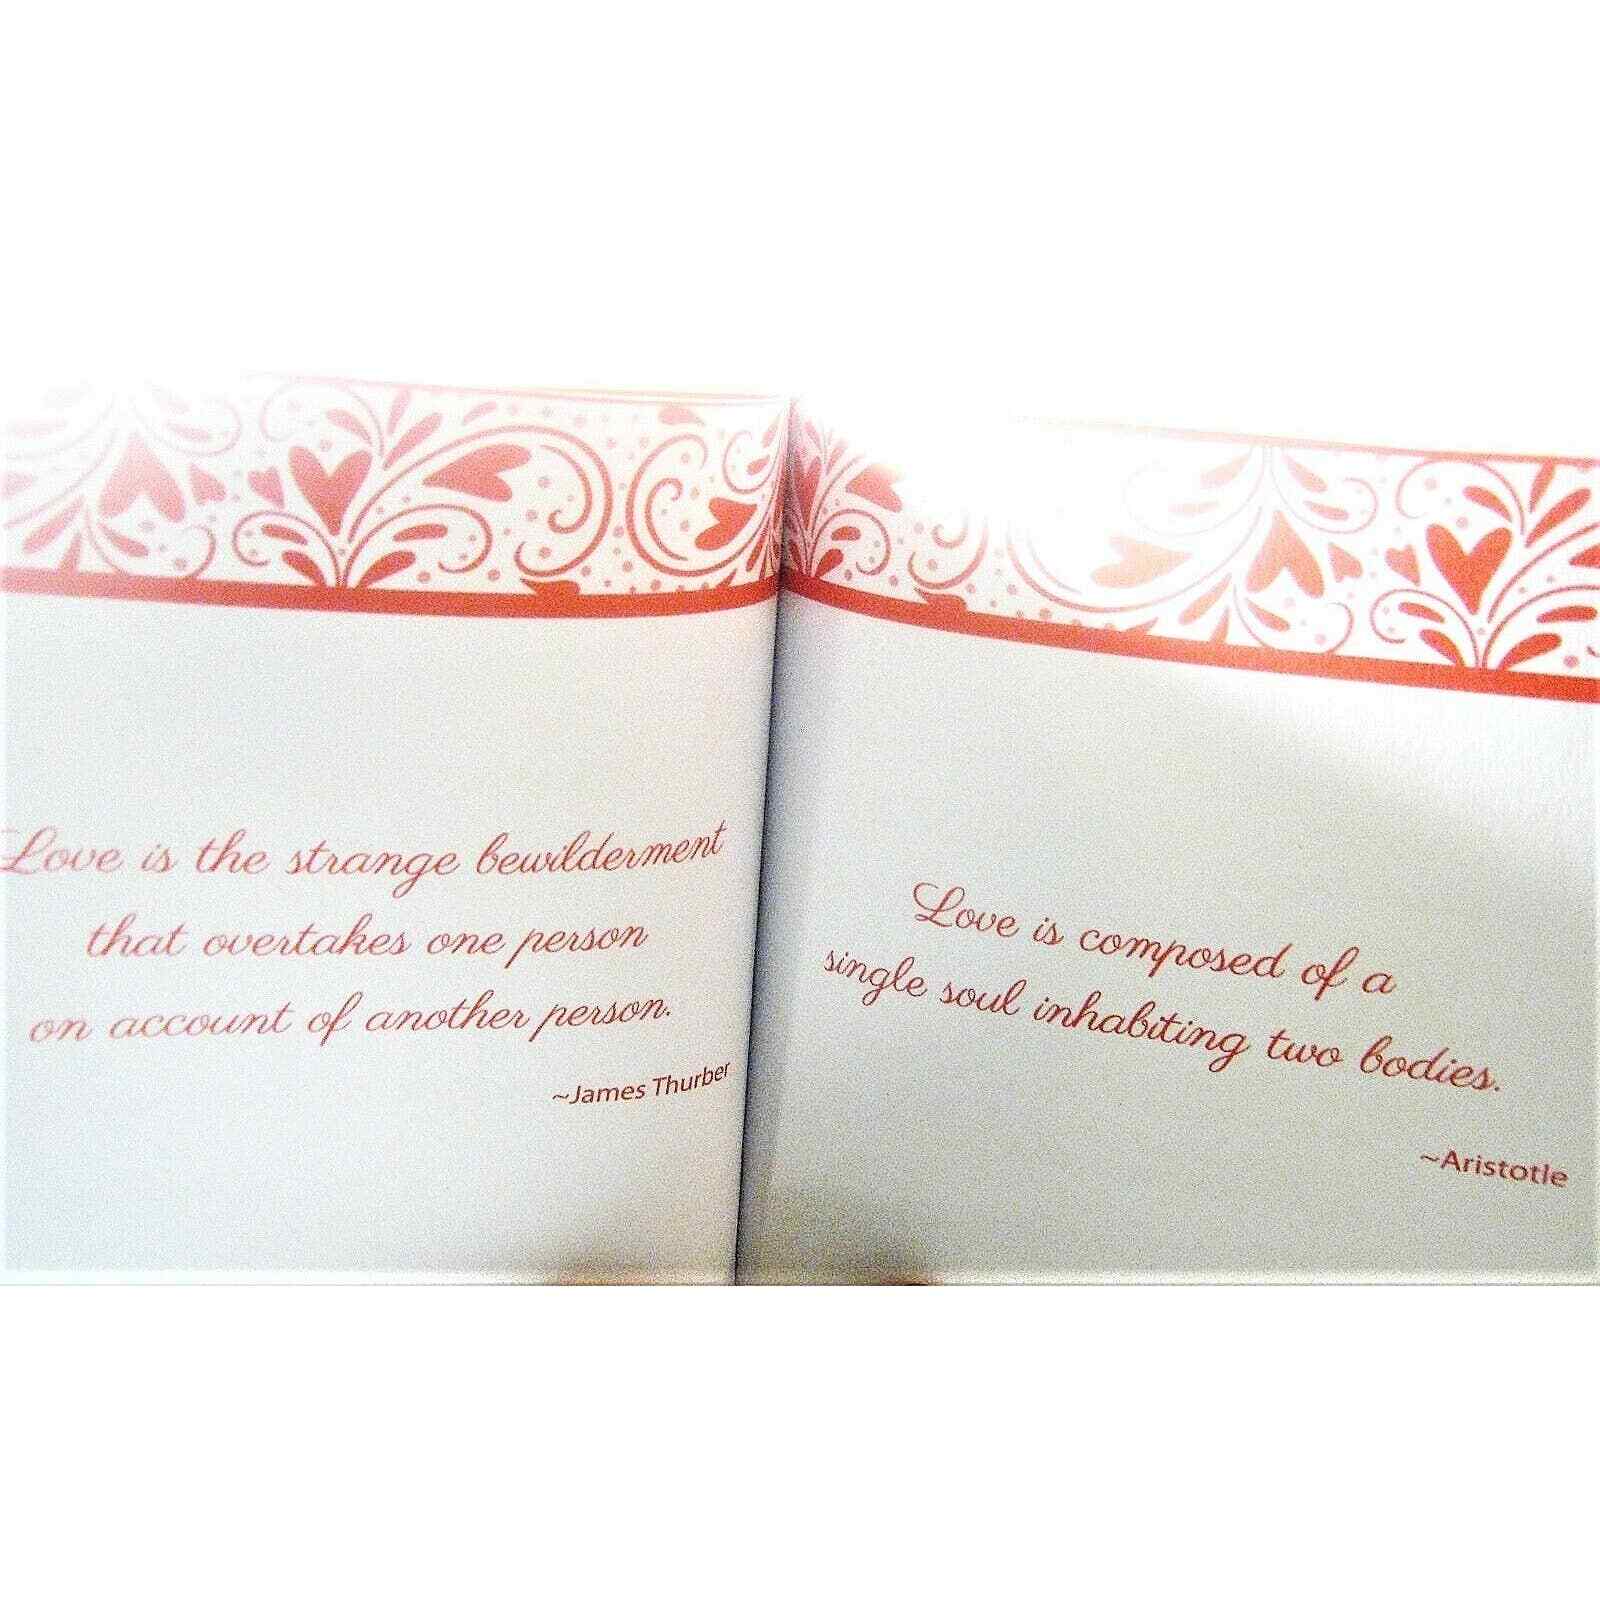 Love is the strange bewilderment
that overtakes one person
on account of another person.
~James Thurber
Love is composed of a
single soul inhabiting two bodies.
~Aristotle